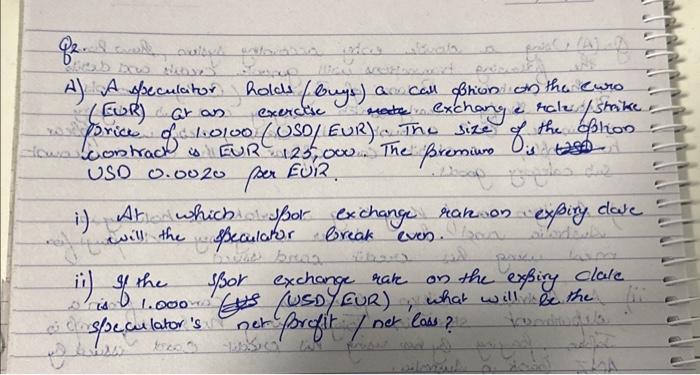 Q2.
A) A speculator holds (buys) a call option on the euro
(EUR) at an exercise exchange rate / strike
price of 1.0100 (USD/EUR). The size of the option
contract is EUR 125,000. The premium is
USD 0.0020 per EUR.
i) At which spot exchange rate on expiry date
will the speculator break even.
ii) If the spot exchange rate on the expiry date
is 1.000 (USD/EUR) what will be the
speculator's net profit / net loss?